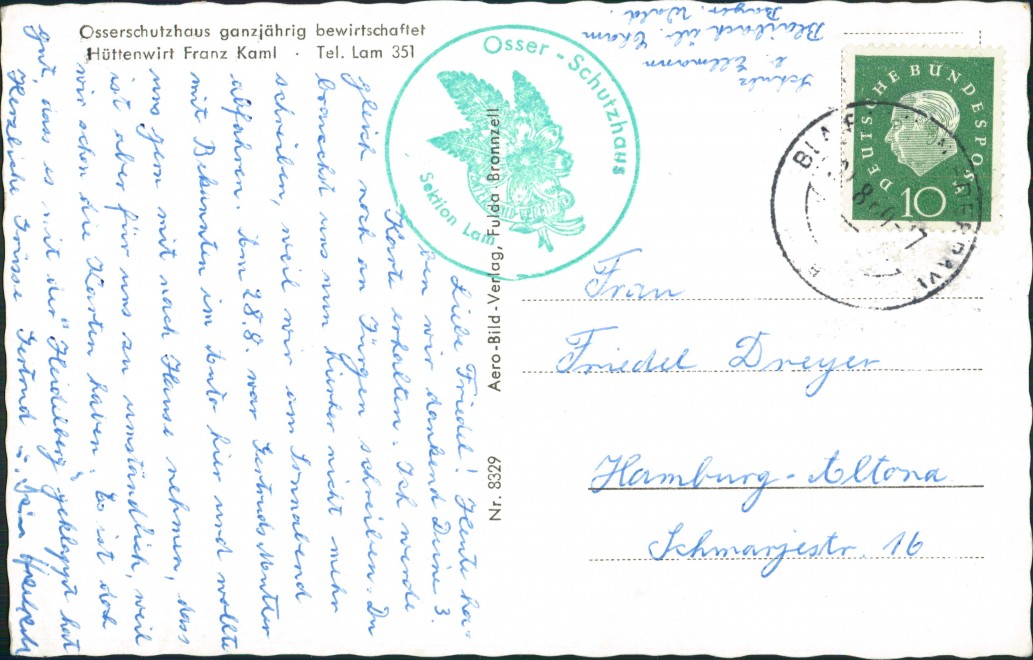 Osserschutzhaus ganzjährig bewirtschaftet
Hüttenwirt Franz Kaml · Tel. Lam 351
Osser-Schutzhaus
Sektion Lam
Schulz
b. Ellmann
Blaibach üb. Cham
Bayer. Wald.
DEUTSCHE BUNDESPOST
10
Aero-Bild-Verlag, Fulda-Bronnzell
Nr. 8329
Frau
Friedel Dreyer
Hamburg-Altona
Schmarjestr. 16
Liebe Friedel! Heute ha-
ben wir dankend Deine 3.
Karte erhalten. Ich werde
gleich noch an Jürgen schreiben. Du
brauchst uns nun hierher nicht mehr
schreiben, weil wir am Sonnabend
abfahren. Am 28.8. war Gertruds Mutter
mit Bekannten im Auto hier und wollte
uns gern mit nach Hause nehmen, das
ist aber für uns zu umständlich, weil
wir schon die Karten haben. Es ist doch
gut, dass es mit der "Heidelberg" geklappt hat
Herzliche Grüsse Gertrud u.